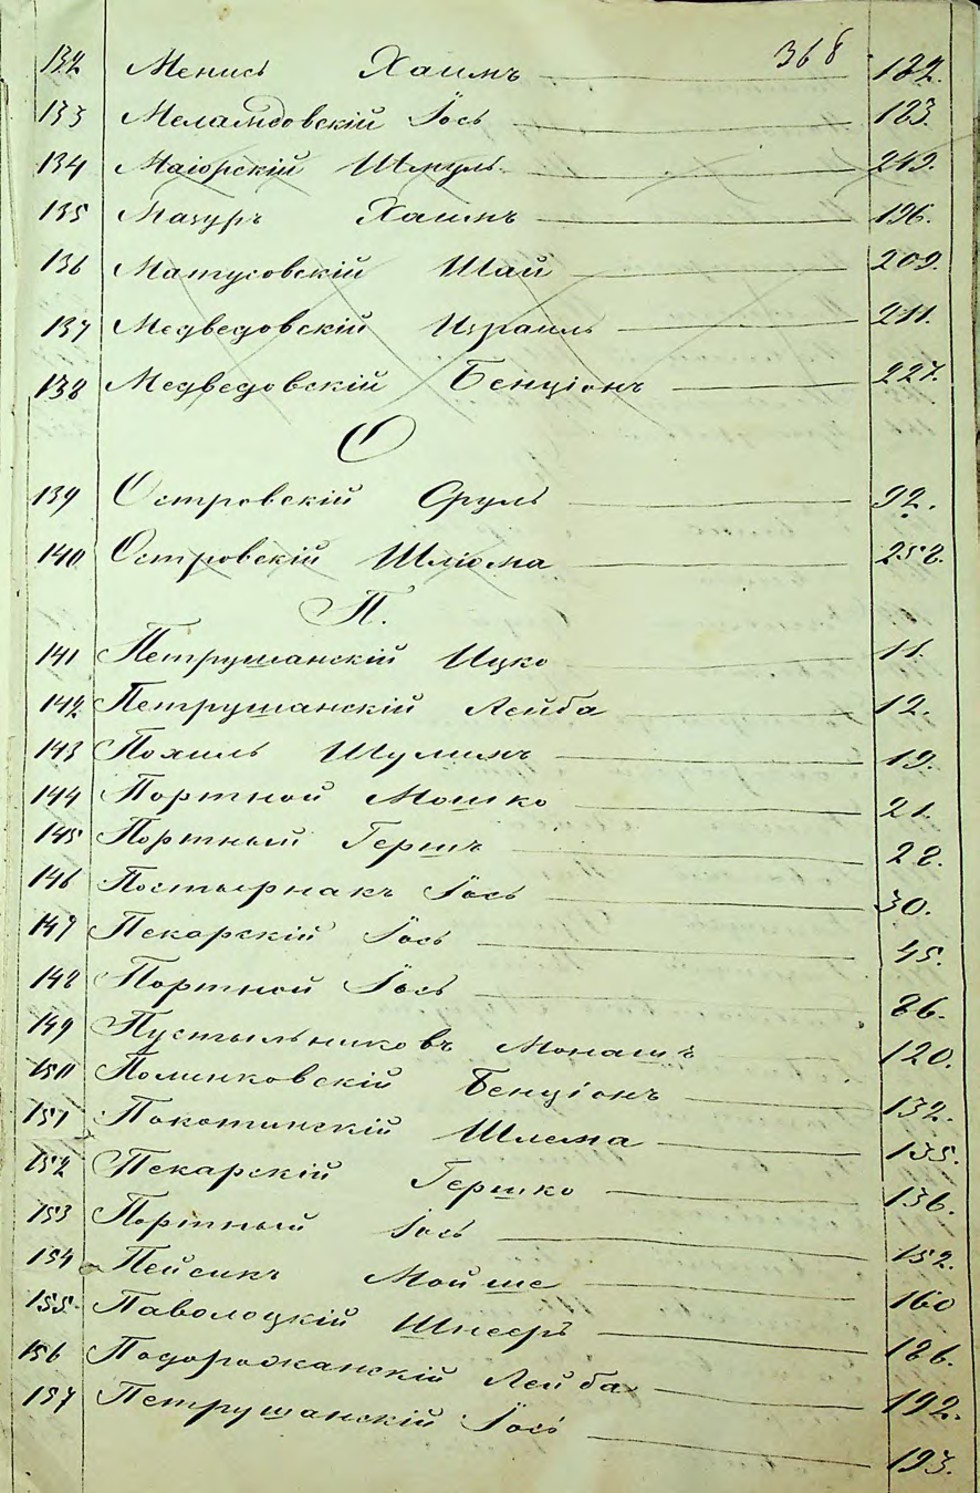 368
132 Менись Хаимъ 182.
133 Меламедовскій Іось 183.
134 Маіорскій Шмуль 249.
135 Мазуръ Хаимъ 196.
136 Матусовскій Шай 209.
137 Медведовскій Израиль 211.
138 Медведовскій Бенціонъ 227.
О
139 Островскій Сруль 92.
140 Островскій Шліома 258.
П.
141 Петрушанскій Ицко 11.
142 Петрушанскій Лейба 12.
143 Шулимъ 19.
144 Портной Мошко 21.
145 Портный Гершъ 28.
146 Постырнакъ Іось 30.
147 Пекарскій Іось 45.
148 Портной Іось 86.
149 Пустыльниковъ Монашъ 120.
150 Полинковскій Бенціонъ 132.
151 Покотинскій Шлема 135.
152 Пекарскій Гершко 136.
153 Портный Іось 152.
154 Пейсикъ Мойше 160
155. Паволоцкій Шнееръ 186.
156 Подорожанскій Лейба 192.
157 Петрушанскій Іось 193.